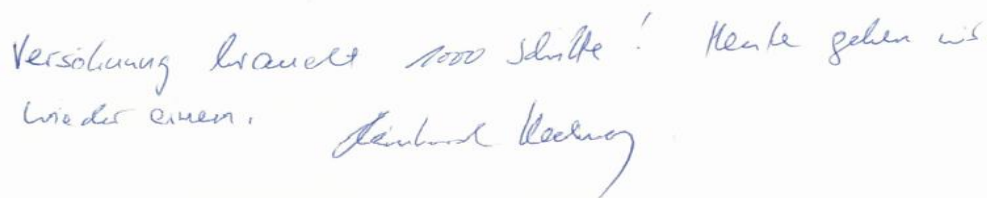 Versöhnung braucht 1000 Schritte! Heute gehen wir
wieder einen.
Reinhard